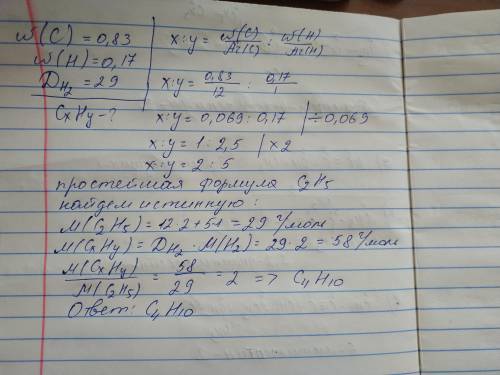 ω(C) = 0,83
ω(H) = 0,17
D_H₂ = 29
CxHy - ?
x:y = ω(C)/Ar(C) : ω(H)/Ar(H)
x:y = 0,83/12 : 0,17/1
x:y = 0,069 : 0,17 | ÷0,069
x:y = 1 : 2,5 | x2
x:y = 2 : 5
простейшая формула C₂H₅
найдем истинную:
M(C₂H₅) = 12·2+5·1 = 29 г/моль
M(CxHy) = D_H₂ · M(H₂) = 29·2 = 58 г/моль
M(CxHy)/M(C₂H₅) = 58/29 = 2 => C₄H₁₀
Ответ: C₄H₁₀